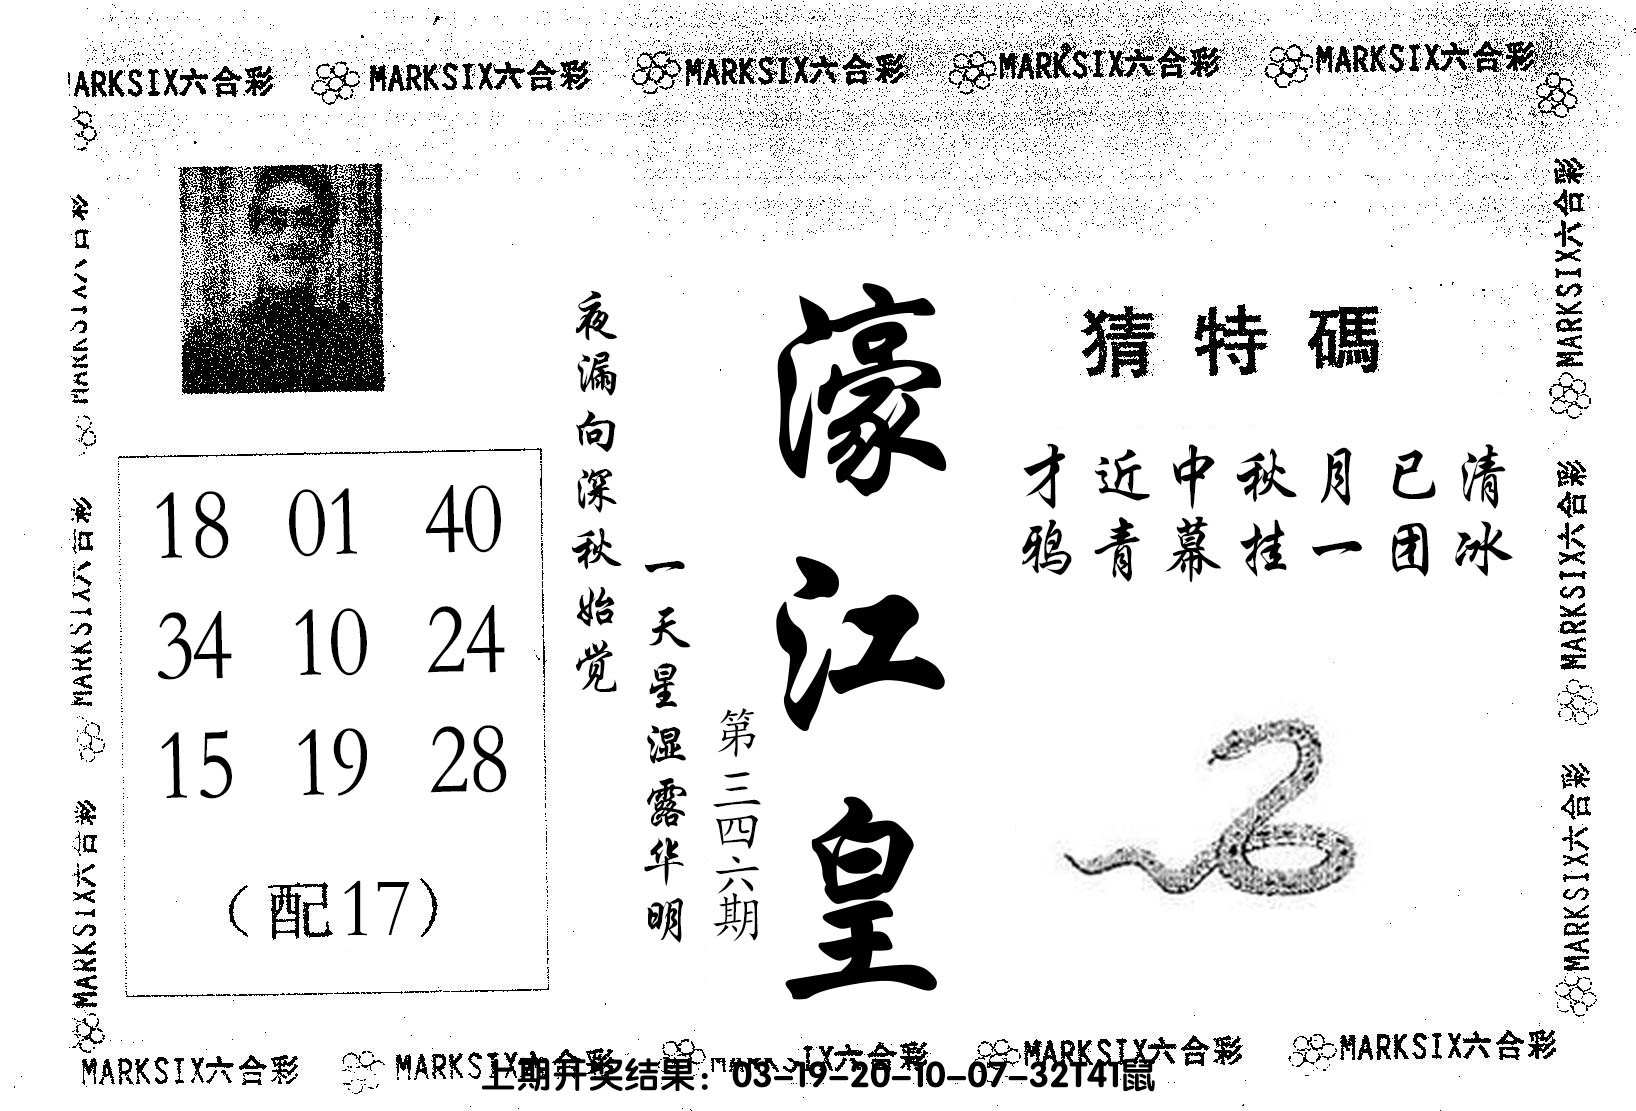 MARKSIX六合彩 MARKSIX六合彩 MARKSIX六合彩 MARKSIX六合彩 MARKSIX六合彩
猜特碼
才近中秋月已清
鸦青幕挂一团冰
濠江皇
第三四六期
夜漏向深秋始觉
一天星湿露华明
18 01 40
34 10 24
15 19 28
（配17）
MARKSIX六合彩
MARKSIX六合彩
MARKSIX六合彩
MARKSIX六合彩
MARKSIX六合彩
MARKSIX六合彩
MARKSIX六合彩 MARKSIX六合彩 MARKSIX六合彩 MARKSIX六合彩 MARKSIX六合彩
上期开奖结果：03-19-20-10-07-32T41鼠